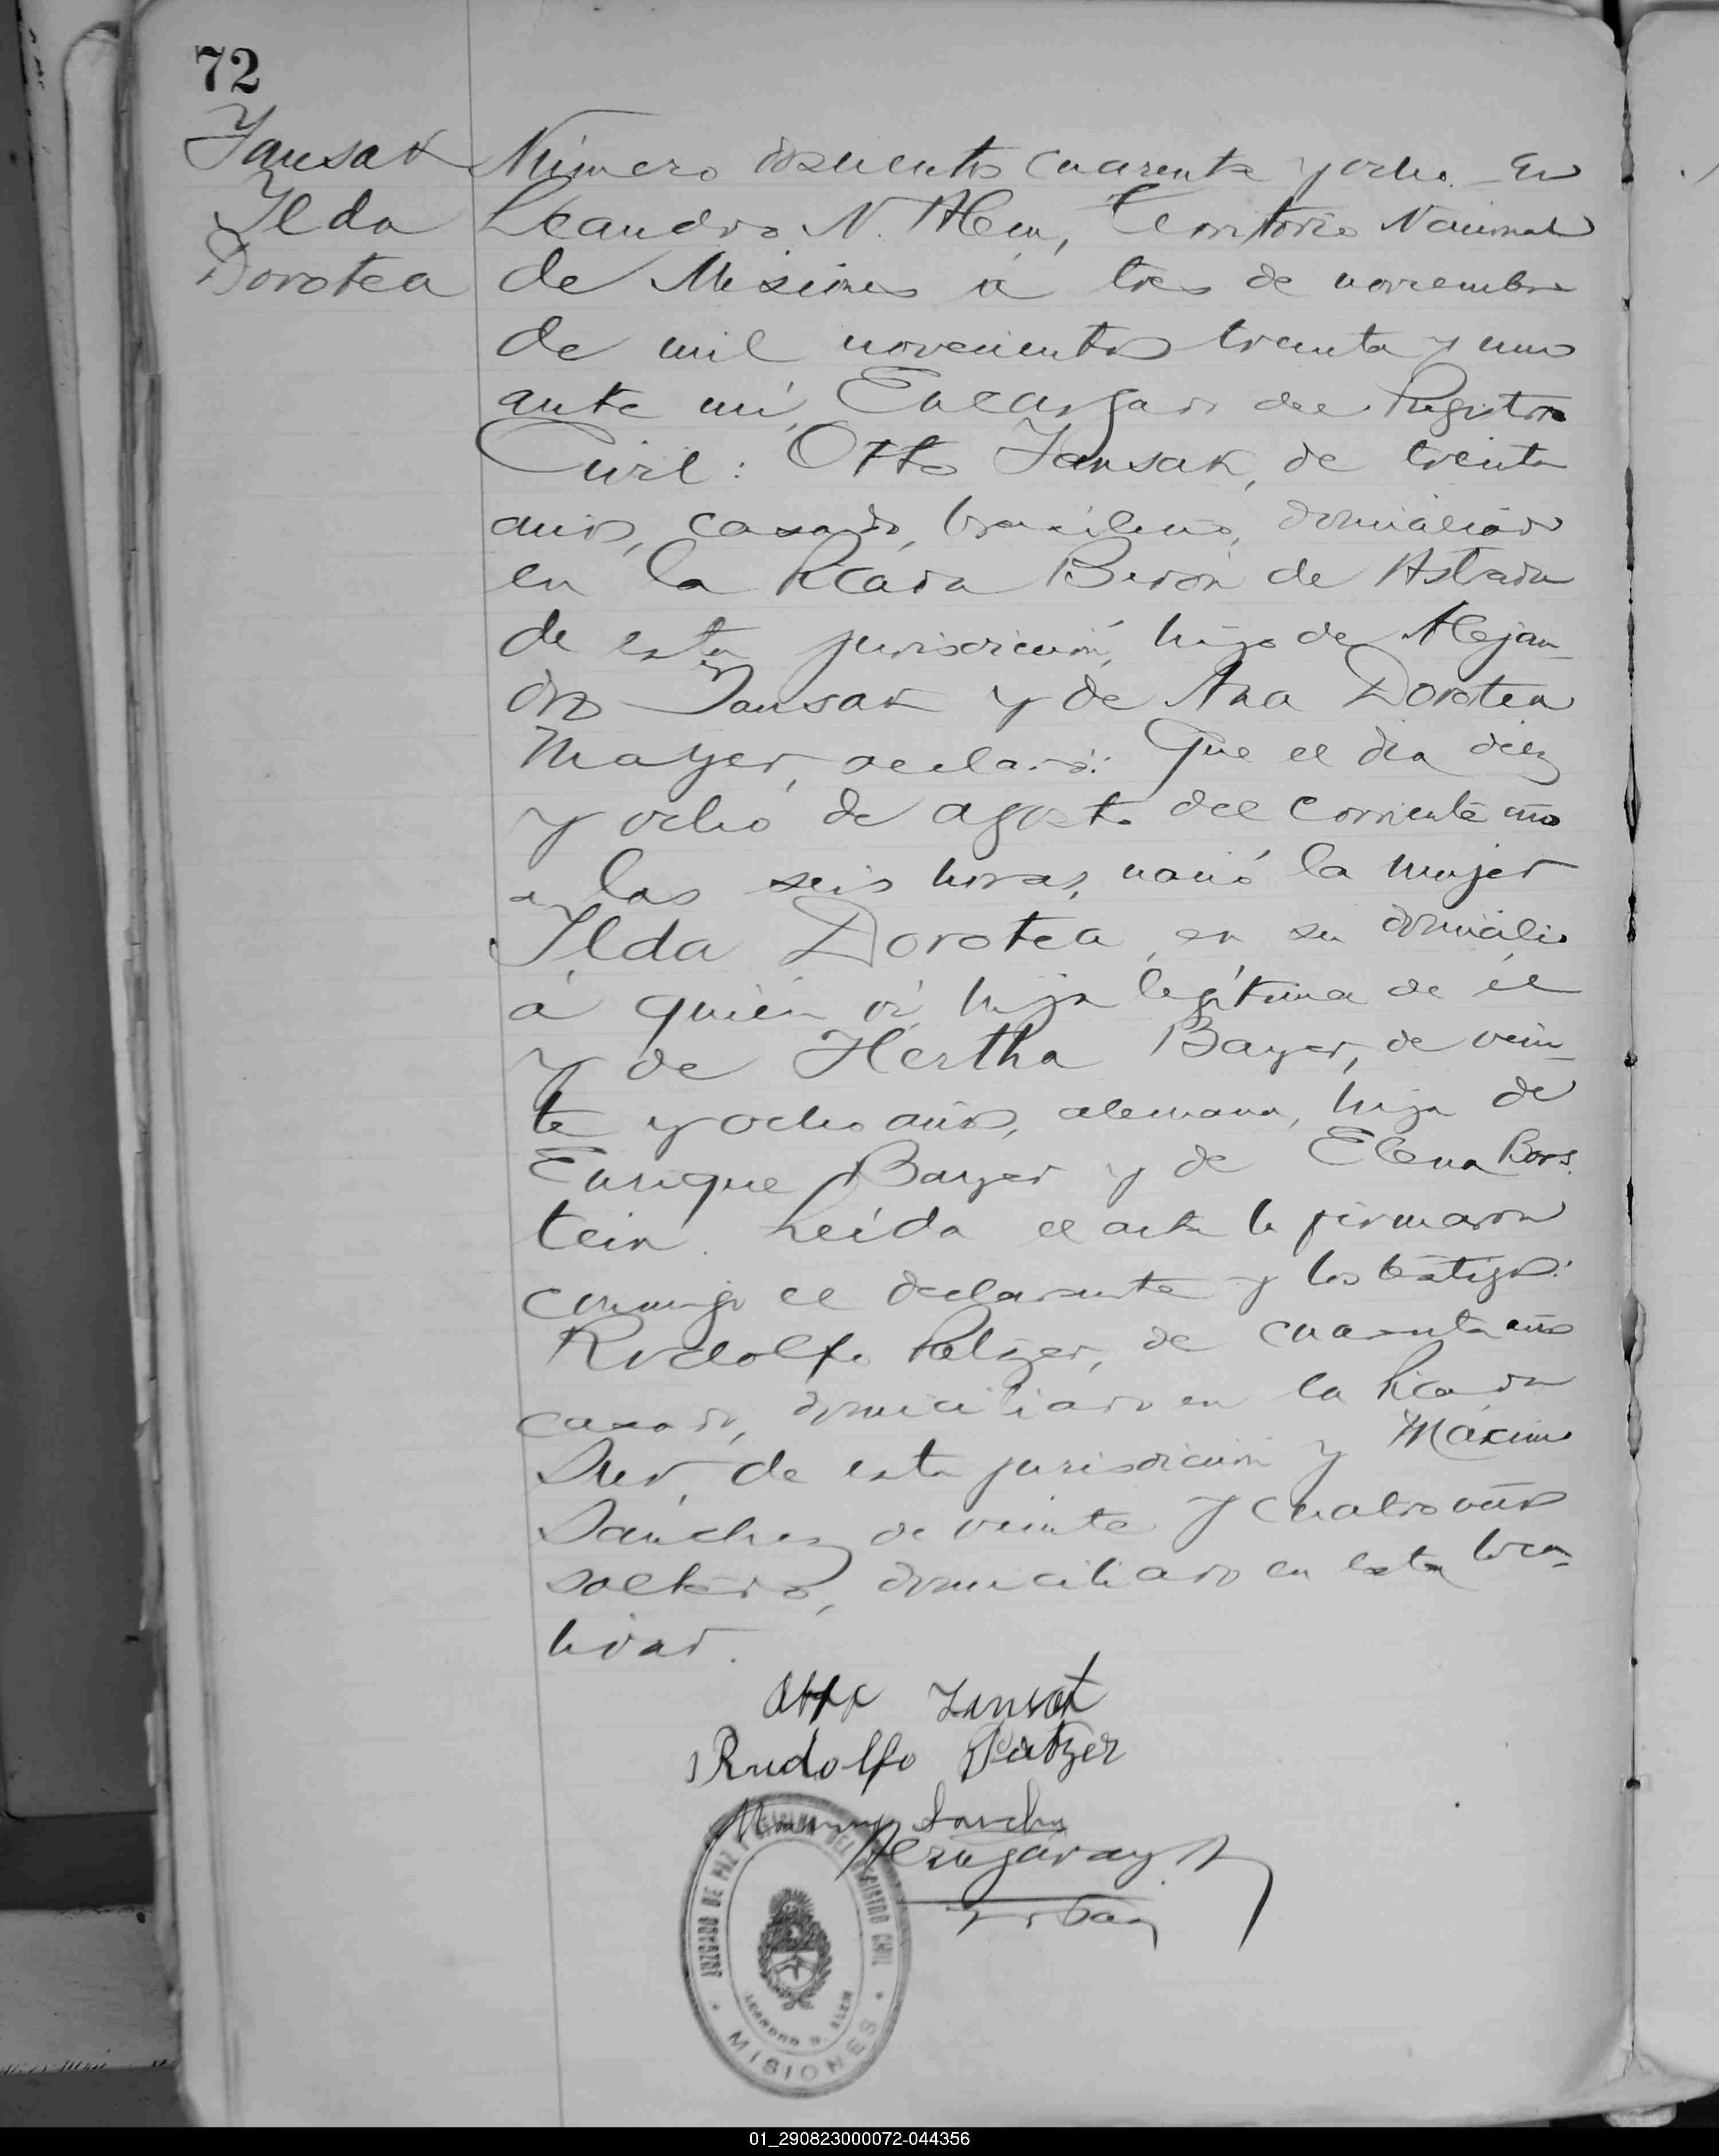 72
Jansak
Ilda
Dorotea
Número doscientos cuarenta y ocho. En
Leandro N. Alem, Territorio Nacional
de Misiones á tres de noviembre
de mil novecientos treinta y uno
ante mí, Encargado del Registro
Civil: Otto Jansak, de treinta
años, casado, brasileño, domiciliado
en la Picada Berón de Astrada
de esta jurisdicción, hijo de Alejan-
dro Jansak y de Ana Dorotea
Mayer, declaró: Que el dia diez
y ocho de agosto del corriente año
a las seis horas, nació la mujer
Ilda Dorotea, en su domicilio
á quién ví, hija legítima de él
y de Hertha Bayer, de vein-
te y ocho años, alemana, hija de
Enrique Bayer y de Elena Bors-
tein. Leída el acta la firmaron
conmigo el declarante y los testigos:
Rodolfo Patzer, de cuarenta años
casado, domiciliado en la Picada
Sur, de esta jurisdicción y Máximo
Sánchez de veinte y cuatro años
soltero, domiciliado en esta loca-
lidad.
Otto Jansak
Rudolfo Patzer
Sanchez
JUZGADO DE PAZ Y OFICINA DEL REGISTRO CIVIL
LEANDRO N. ALEM
MISIONES
01_290823000072-044356